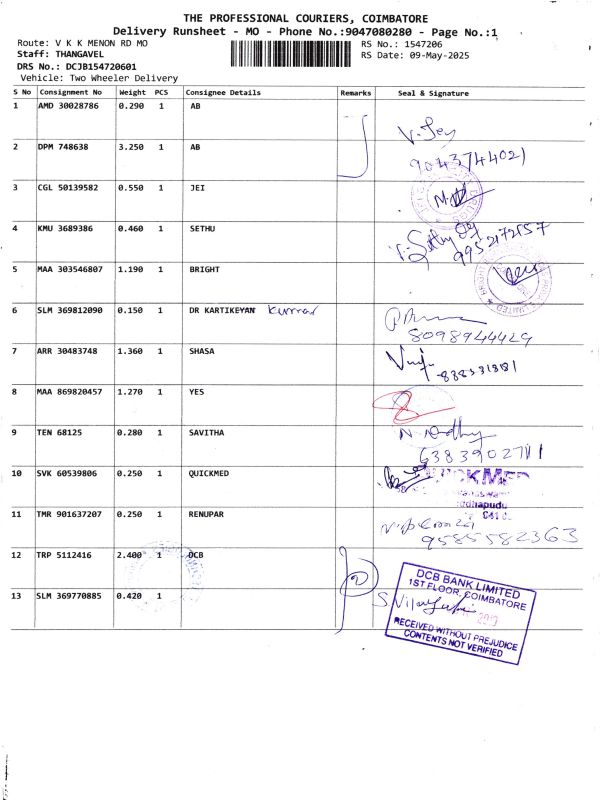 THE PROFESSIONAL COURIERS, COIMBATORE
Delivery Runsheet - MO - Phone No.:9047080280 - Page No.:1
Route: V K K MENON RD MO RS No.: 1547206
Staff: THANGAVEL RS Date: 09-May-2025
DRS No.: DCJB154720601
Vehicle: Two Wheeler Delivery
S No Consignment No Weight PCS Consignee Details Remarks Seal & Signature
1 AMD 30028786 0.290 1 AB
2 DPM 748638 3.250 1 AB 9043744021
3 CGL 50139582 0.550 1 JEI
4 KMU 3689386 0.460 1 SETHU 9952172157
5 MAA 303546807 1.190 1 BRIGHT
6 SLM 369812090 0.150 1 DR KARTIKEYAN Kumar
8098944429
7 ARR 30483748 1.360 1 SHASA
8 MAA 869820457 1.270 1 YES
9 TEN 68125 0.280 1 SAVITHA
10 SVK 60539806 0.250 1 QUICKMED
11 TMR 901637207 0.250 1 RENUPAR
9585582363
12 TRP 5112416 2.400 1 DCB 2
DCB BANK LIMITED
1ST FLOOR, COIMBATORE
13 SLM 369770885 0.420 1
RECEIVED WITHOUT PREJUDICE
CONTENTS NOT VERIFIED